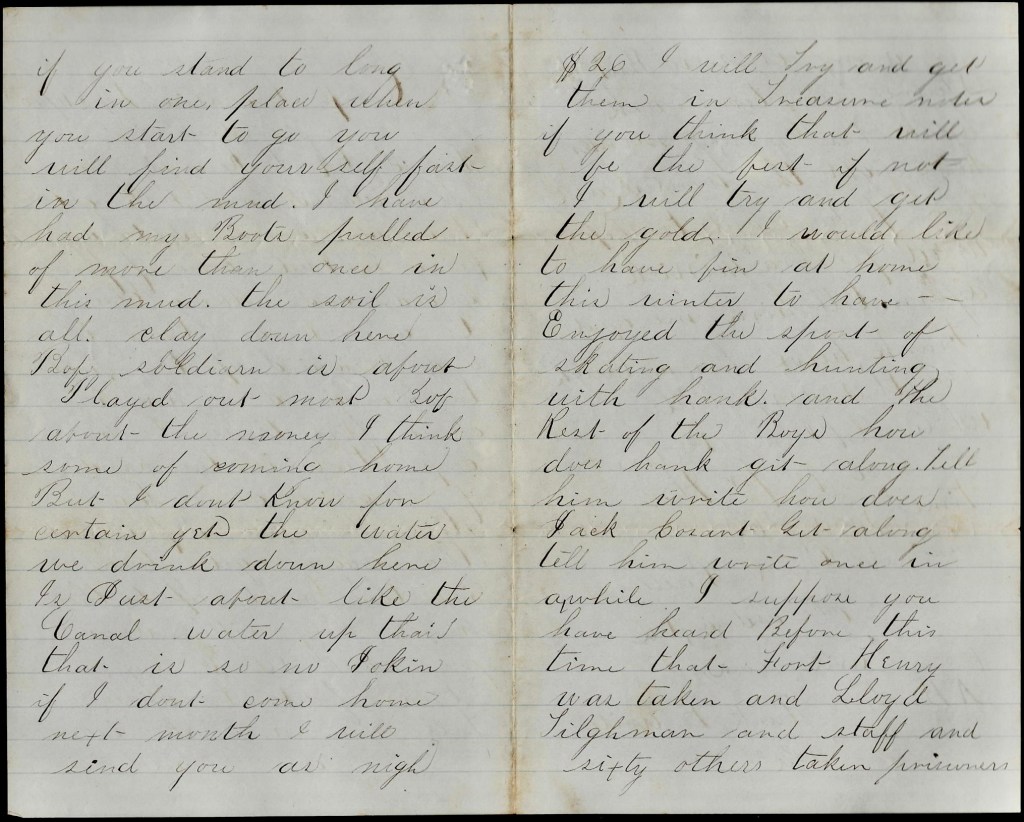 if you stand to long
in one, place when
you start to go you
will find your self fast
in the mud. I have
had my Boots pulled
of more than once in
this mud. the soil is
all. clay down here
Bop soldiarn is about
Played out most Bop
about the money I think
some of coming home
But I dont Know for
certain yet the water
we drink down here
Is Just about like the
Canal water up thair
that is so no Jokin
if I dont come home
next month I will
send you as nigh
$26 I will Try and get
them in Treasure notes
if you think that will
be the best if not
I will try and get
the gold. I would like
to have bin at home
this winter to have - -
Enjoyed the sport of
skating and hunting
with hank. and the
Rest of the Boys how
does hank git along. Tell
him write how does
Jack Cozant Get along
tell him write once in
awhile I suppose you
have heard Before this
time that Fort Henry
was taken and Lloyd
Tilghman and staff and
sixty others taken prisoners